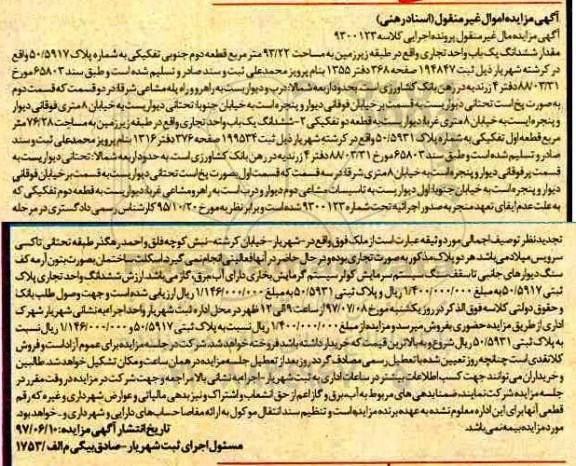 آگهی مزایده اموال غیر منقول (اسناد رهنی)
آگهی مزایده مال غیر منقول پرونده اجرایی کلاسه ۹۳۰۰۱۲۳
مقدار ششدانگ یک باب واحد تجاری واقع در طبقه زیرزمین به مساحت ۹۳/۲۲ متر مربع قطعه دوم جنوبی تفکیکی به شماره پلاک ۵۰/۵۹۱۷ واقع
در کرشته شهریار ذیل ثبت ۱۹۴۸۴۷ صفحه ۳۶۸ دفتر ۱۳۵۵ بنام پرویز محمدعلی ثبت و سند صادر و تسلیم شده است و طبق سند ۶۵۸۰۳ مورخ
۸۸/۰۳/۳۱ دفتر ۴ رزندیه در رهن بانک کشاورزی است. بحدود اربعه شمالا: درب و دیواریست به راهرو و راه پله مشاعی شرقا در دو قسمت که قسمت دوم
به صورت پخ است تحتانی دیواریست به قسمت بر خیابان فوقانی دیوار و پنجره است به خیابان جنوبا تحتانی دیواریست به خیابان ۸ متری فوقانی دیوار
و پنجره ایست به خیابان ۸ متری غربا دیواریست به قطعه دو تفکیکی ۲- ششدانگ یک باب واحد تجاری واقع در طبقه زیرزمین به مساحت ۷۶/۲۸ متر
مربع قطعه اول تفکیکی به شماره پلاک ۵۰/۵۹۳۱ واقع در کرشته شهریار ذیل ثبت ۱۹۹۵۳۴ صفحه ۳۷۶ دفتر ۱۳۱۶ بنام پرویز محمدعلی ثبت و سند
صادر و تسلیم شده است و طبق سند ۶۵۸۰۳ مورخ ۸۸/۰۳/۳۱ دفتر ۴ رزندیه در رهن بانک کشاورزی است. به حدود اربعه شمالا: تحتانی دیواریست به
قسمت بر فوقانی دیوار و پنجره است به خیابان ۸ متری شرقا در سه قسمت که قسمت اول صورت پخ است تحتانی دیواریست به قسمت بر خیابان فوقانی
دیوار و پنجره است به خیابان جنوبا اول دیواریست به تاسیسات مشاعی دوم دیوار و درب است به راهرو مشاعی غربا دیواریست به قطعه دوم تفکیکی که
به علت عدم ایفای تعهد منجر به صدور اجرائیه تحت شماره ۹۳۰۰۱۲۳ شده است و برابر نظریه مورخ ۹۵/۱۰/۲۰ کارشناس رسمی دادگستری در مرحله
تجدید نظر توصیف اجمالی مورد وثیقه عبارت است از ملک فوق واقع در - شهریار - خیابان کرشته - نبش کوچه فلق و احمد رهگذر طبقه تحتانی تاکسی
سرویس میلاد می باشد هر دو پلاک مذکور به صورت تجاری بوده و در حال حاضر در آنها فعالیتی انجام نمی گیرد اسکلت ساختمان بصورت بتون آرمه کف
سنگ دیوارهای جانبی تا سقف سنگ سیستم سرمایش کولر سیستم گرمایش بخاری دارای آب برق، گاز می باشد ارزش ششدانگ واحد تجاری پلاک
ثبتی ۵۰/۵۹۱۷ به مبلغ ۱/۴۰۰/۰۰۰/۰۰۰ ریال و پلاک ثبتی ۵۰/۵۹۳۱ به مبلغ ۱/۱۴۶/۰۰۰/۰۰۰ ریال ارزیابی شده است و جهت وصول طلب بانک
و حقوق دولتی کلاسه فوق الذکر در روز یکشنبه مورخ ۹۷/۰۷/۰۸ از ساعت ۹ الی ۱۲ ظهر در محل اداره ثبت شهریار واحد اجرا به نشانی شهریار شهرک
اداری از طریق مزایده حضوری بفروش میرسد و مزایده از مبلغ ۱/۴۰۰/۰۰۰/۰۰۰ ریال نسبت به پلاک ثبتی ۵۰/۵۹۱۷ و مبلغ ۱/۱۴۶/۰۰۰/۰۰۰ ریال نسبت
به پلاک ثبتی ۵۰/۵۹۳۱ ریال شروع و به بالاترین قیمت که خریدار داشته باشد فروخته خواهد شد. شرکت در جلسه مزایده برای عموم آزاد است و فروش
کلا نقدی است چنانچه روز تعیین شده با تعطیل رسمی مصادف گردد روز بعد از تعطیل جلسه مزایده در همان ساعت و مکان تشکیل خواهد شد. طالبین
و خریداران می توانند جهت کسب اطلاعات بیشتر در ساعات اداری به ثبت شهریار - اجرا به نشانی بالا مراجعه و جهت شرکت در مزایده در وقت مقرر در
جلسه مزایده شرکت نمایند. ضمنا بدهی های مربوط به آب برق و گاز اعم از حق انشعاب و اشتراک و نیز بدهی مالیاتی و عوارض شهرداری و غیره که رقم
قطعی آنها برای این اداره معلوم نشده به عهده برنده مزایده است و تنظیم سند انتقال موکول به ارائه مفاصا حساب های دارایی و شهرداری و... خواهد بود.
مورد مزایده بیمه نمی باشد.
تاریخ انتشار آگهی مزایده: ۹۷/۰۶/۱۰
مسئول اجرای ثبت شهریار - صادق بیگی م الف/۱۷۵۳